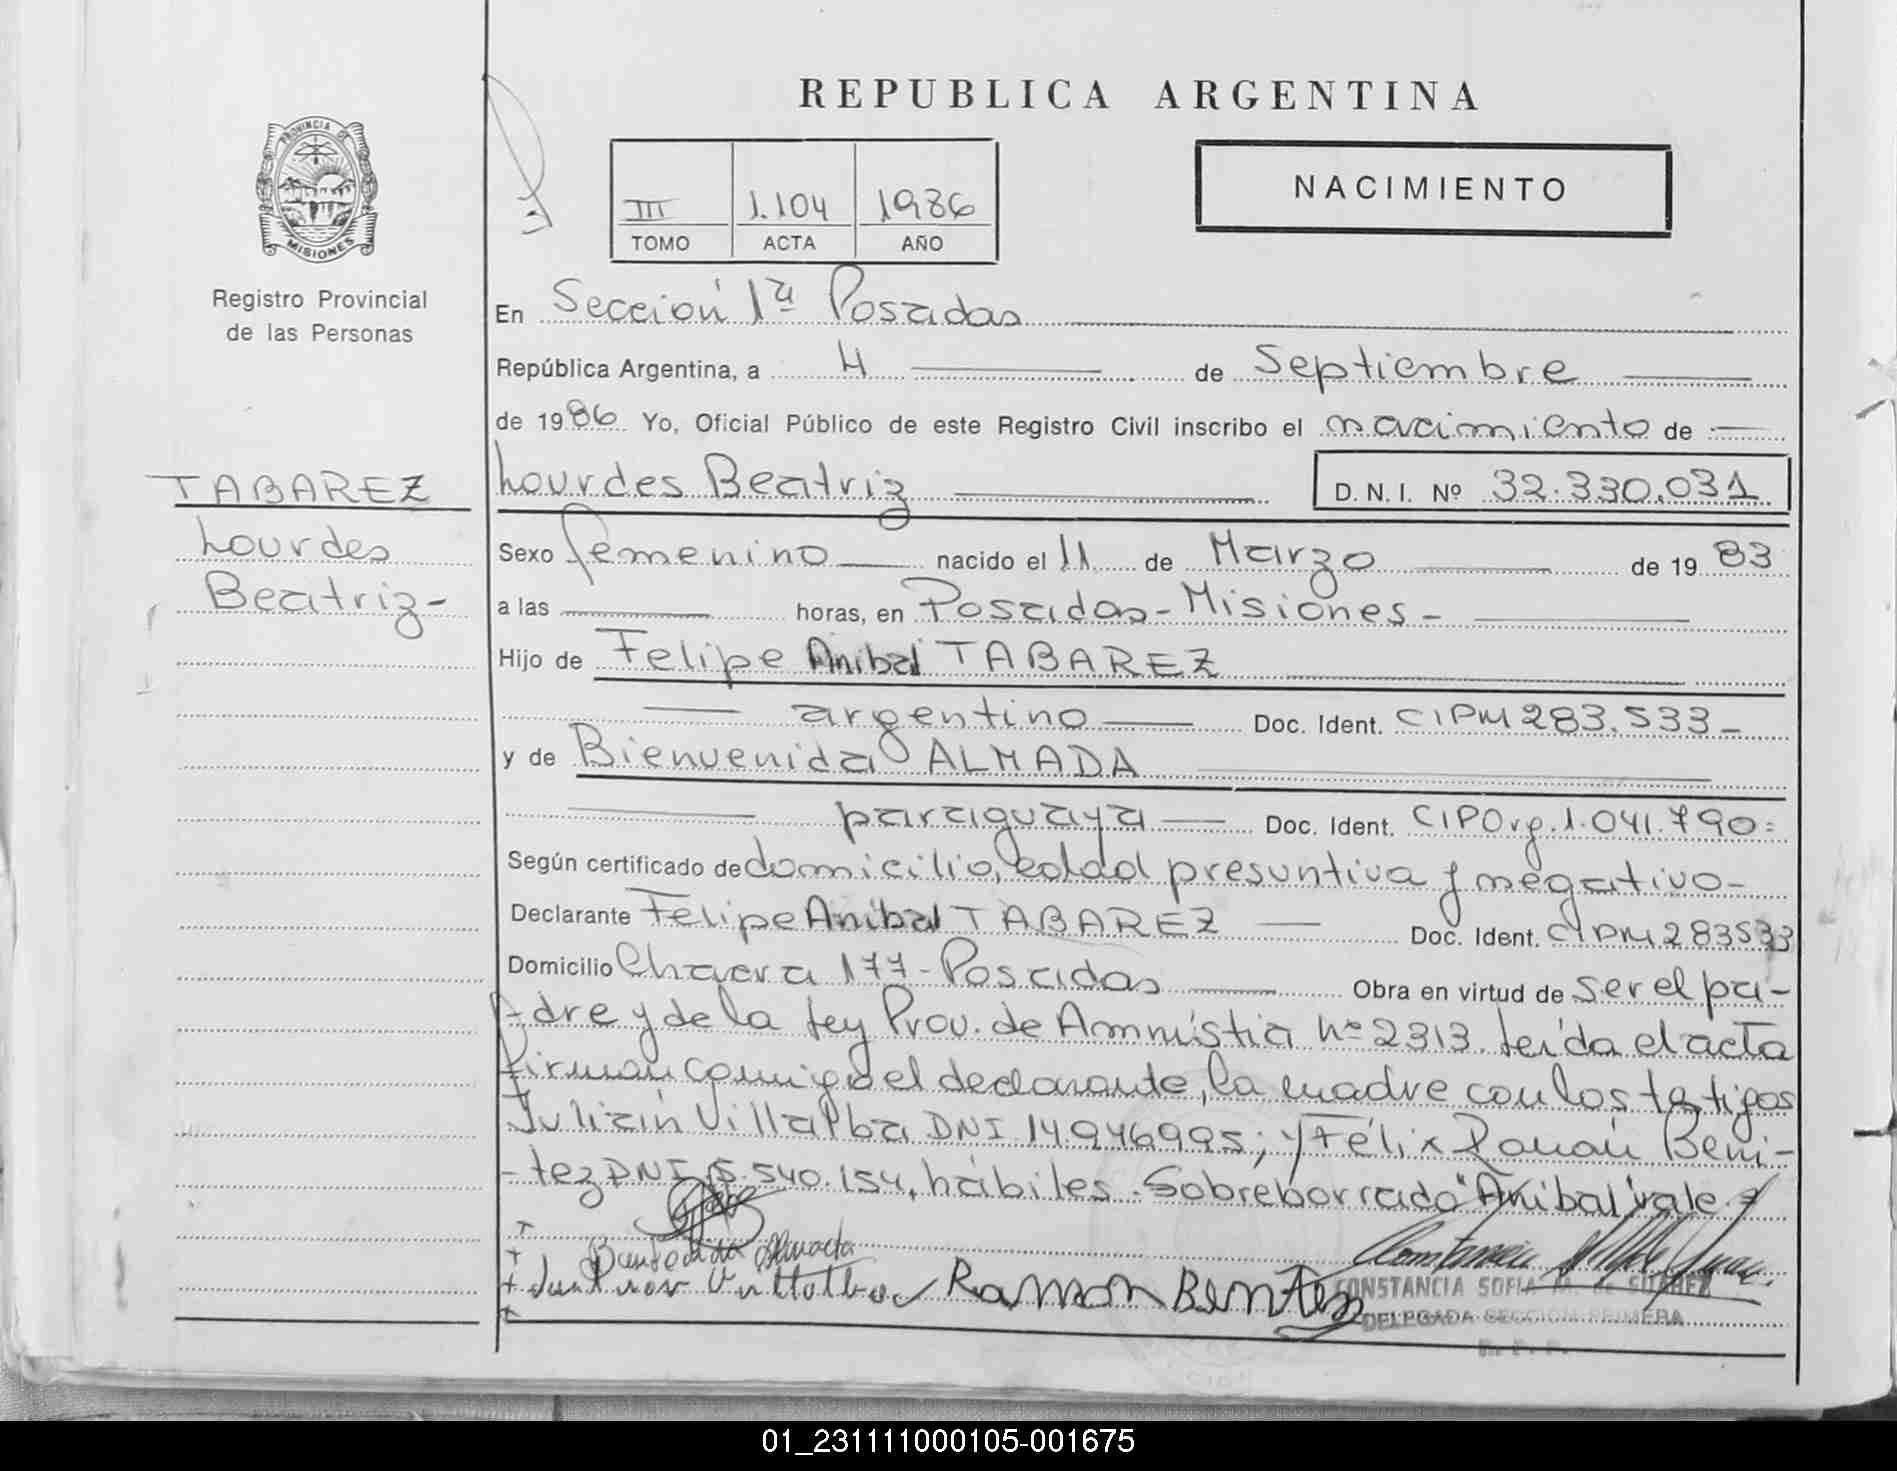 REPUBLICA ARGENTINA
PROVINCIA DE
MISIONES
Registro Provincial
de las Personas
TABAREZ
Lourdes
Beatriz-
III 1.104 1986
TOMO ACTA AÑO
NACIMIENTO
En Sección 1ª Posadas
República Argentina, a 4 de Septiembre
de 1986 Yo, Oficial Público de este Registro Civil inscribo el nacimiento de
Lourdes Beatriz D.N.I. Nº 32.330.031
Sexo femenino nacido el 11 de Marzo de 1983
a las horas, en Posadas-Misiones-
Hijo de Felipe Anibal TABAREZ
argentino Doc. Ident. CIPM 283.533-
y de Bienvenida ALMADA
paraguaya Doc. Ident. CIPOrg.1.041.790=
Según certificado de domicilio, edad presuntiva y negativo-
Declarante Felipe Anibal TABAREZ Doc. Ident. CIPM 283533
Domicilio Chacra 177-Posadas Obra en virtud de ser el pa-
dre y de la Ley Prov. de Amnistia Nº 2313. Leída el acta
firman conmigo el declarante, la madre con los testigos
Julián Villalba DNI 14.946995; y Félix Ramón Beni-
-tez DNI 5.540.154, hábiles. Sobreborrado "Anibal" vale
Ramon Benitez
CONSTANCIA SOFIA M. de SUAREZ
DELEGADA SECCION PRIMERA
R. P. P.
01_231111000105-001675